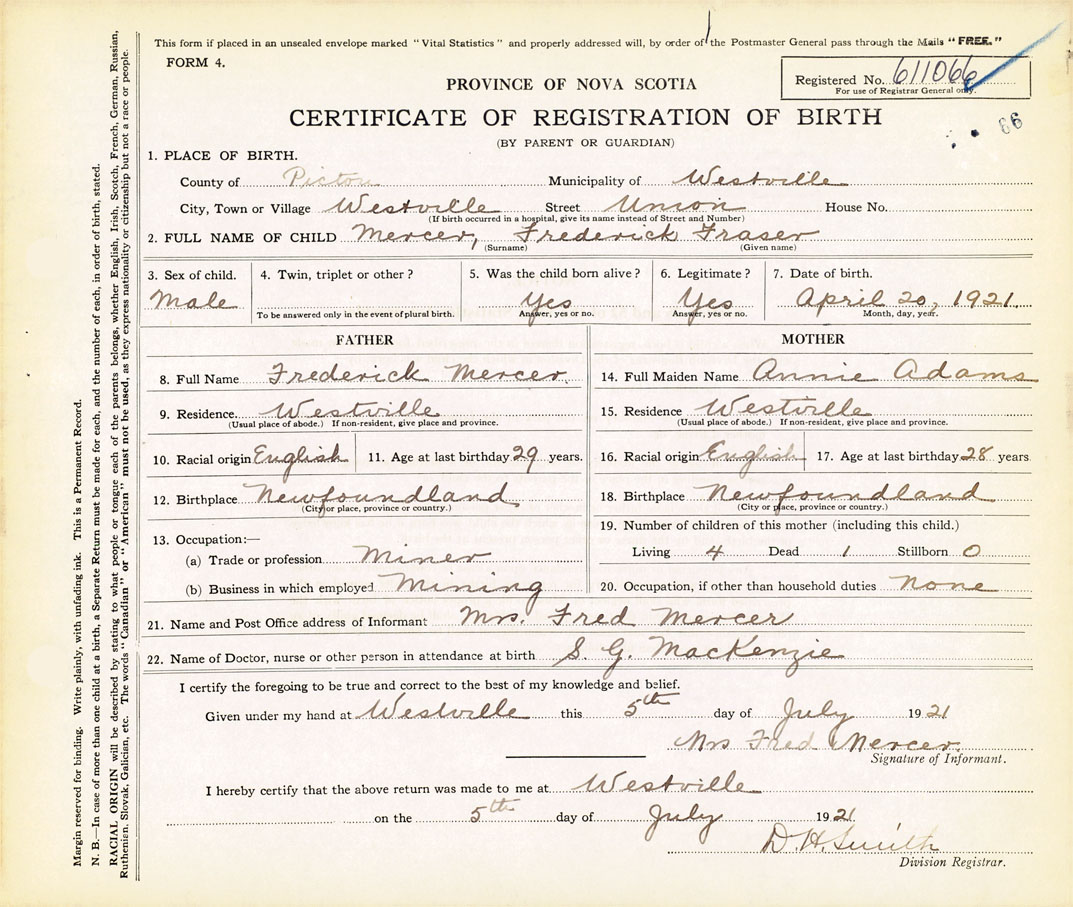 This form if placed in an unsealed envelope marked "Vital Statistics" and properly addressed will, by order of the Postmaster General pass through the Mails "FREE."
FORM 4.
Registered No. 611066
For use of Registrar General only.
PROVINCE OF NOVA SCOTIA
CERTIFICATE OF REGISTRATION OF BIRTH
66
(BY PARENT OR GUARDIAN)
1. PLACE OF BIRTH.
County of Pictou Municipality of Westville
City, Town or Village Westville Street Union House No.
(If birth occurred in a hospital, give its name instead of Street and Number)
2. FULL NAME OF CHILD Mercer, Frederick Fraser
(Surname) (Given name)
3. Sex of child. 4. Twin, triplet or other? 5. Was the child born alive? 6. Legitimate? 7. Date of birth.
Male Yes Yes April 20, 1921
To be answered only in the event of plural birth. Answer, yes or no. Answer, yes or no. Month, day, year.
FATHER MOTHER
8. Full Name Frederick Mercer. 14. Full Maiden Name Annie Adams
9. Residence. Westville 15. Residence Westville
(Usual place of abode.) If non-resident, give place and province. (Usual place of abode.) If non-resident, give place and province.
10. Racial origin English 11. Age at last birthday 29 years. 16. Racial origin English 17. Age at last birthday 28 years
12. Birthplace Newfoundland 18. Birthplace Newfoundland
(City or place, province or country.) (City or place, province or country.)
13. Occupation:— 19. Number of children of this mother (including this child.)
(a) Trade or profession Miner Living 4 Dead 1 Stillborn 0
(b) Business in which employed Mining 20. Occupation, if other than household duties None
21. Name and Post Office address of Informant Mrs. Fred Mercer
22. Name of Doctor, nurse or other person in attendance at birth S. G. MacKenzie
I certify the foregoing to be true and correct to the best of my knowledge and belief.
Given under my hand at Westville this 5th day of July 1921
Mrs Fred Mercer.
Signature of Informant.
I hereby certify that the above return was made to me at Westville
on the 5th day of July 1921
D. H. Smith
Division Registrar.
Margin reserved for binding. Write plainly, with unfading ink. This is a Permanent Record.
N. B.—In case of more than one child at a birth, a Separate Return must be made for each, and the number of each, in order of birth, stated.
RACIAL ORIGIN will be described by stating to what people or tongue each of the parents belongs, whether English, Irish, Scotch, French, German, Russian,
Ruthenian, Slovak, Galician, etc. The words "Canadian" or "American" must not be used, as they express nationality or citizenship but not a race or people.